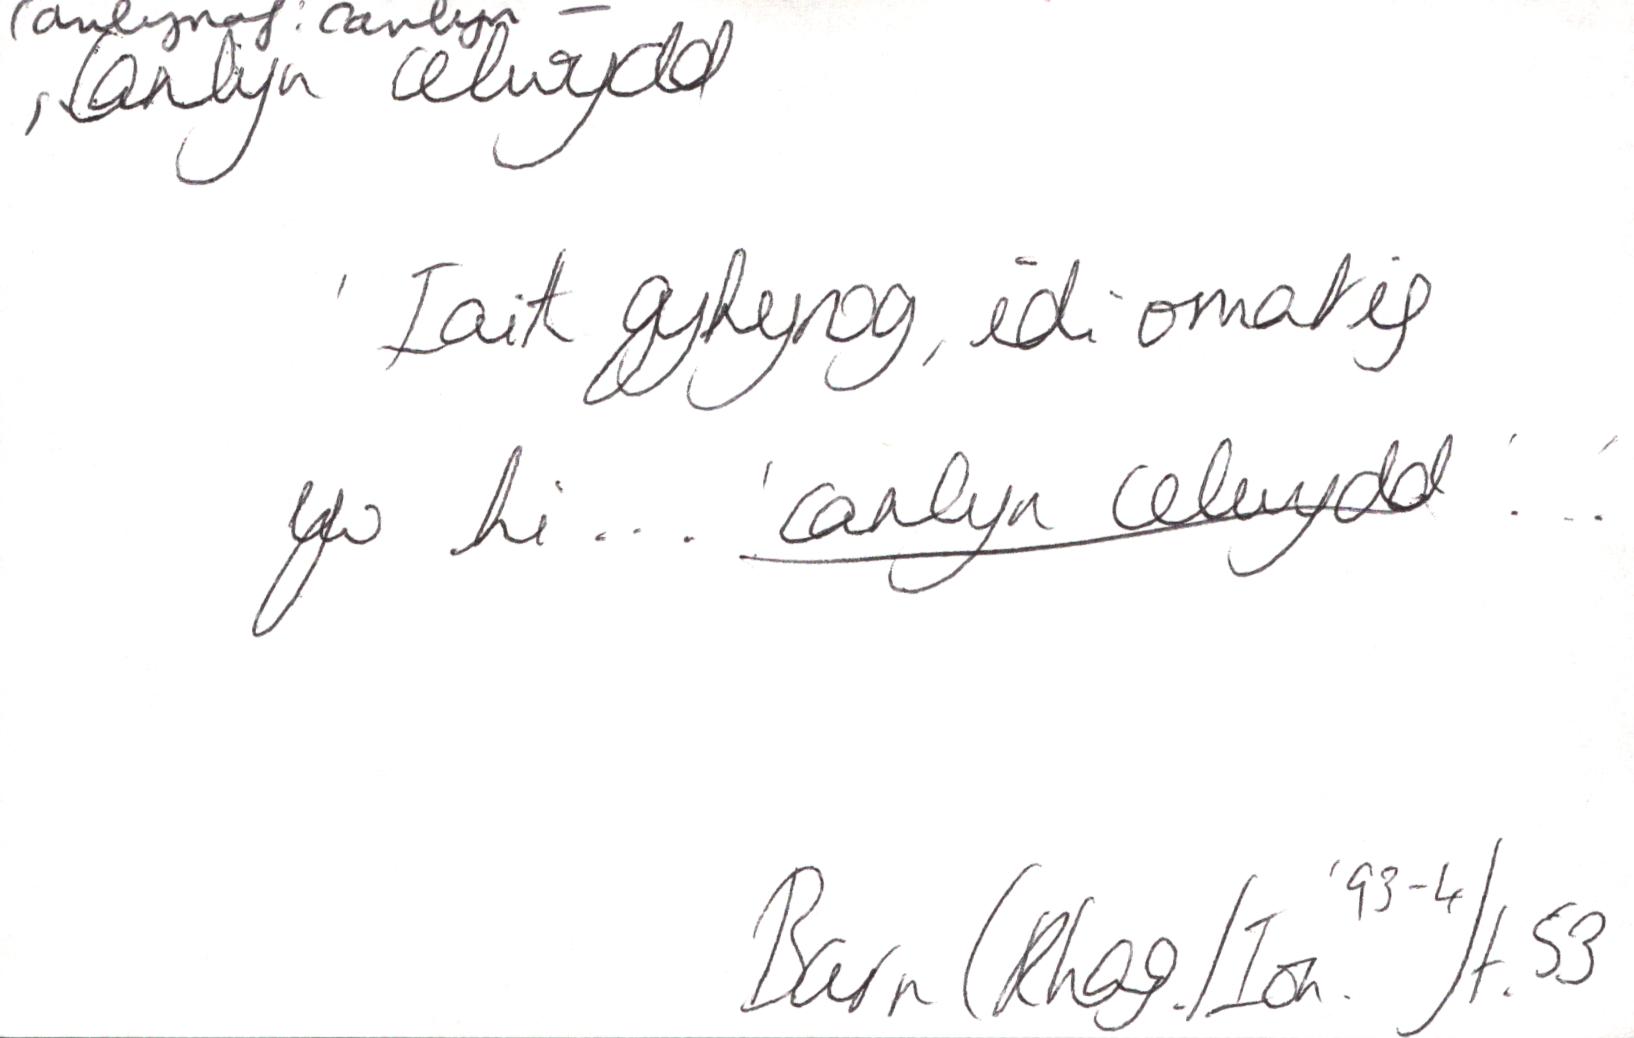 canlynaf: canlyn –
, Canlyn celwydd
' Iait gyhyrog, idiomatig
yw hi ... 'canlyn celwydd' ...'
Barn (Rhag./Ion. '93-4) t. 53